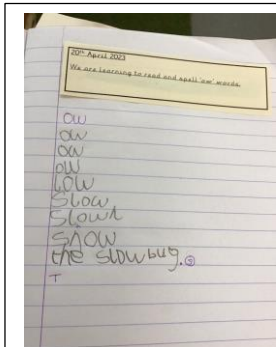 20th April 2023
We are learning to read and spell 'ow' words.
ow
ow
ow
ow
low
Slow
Slow
SnOW
the slow bug.
T